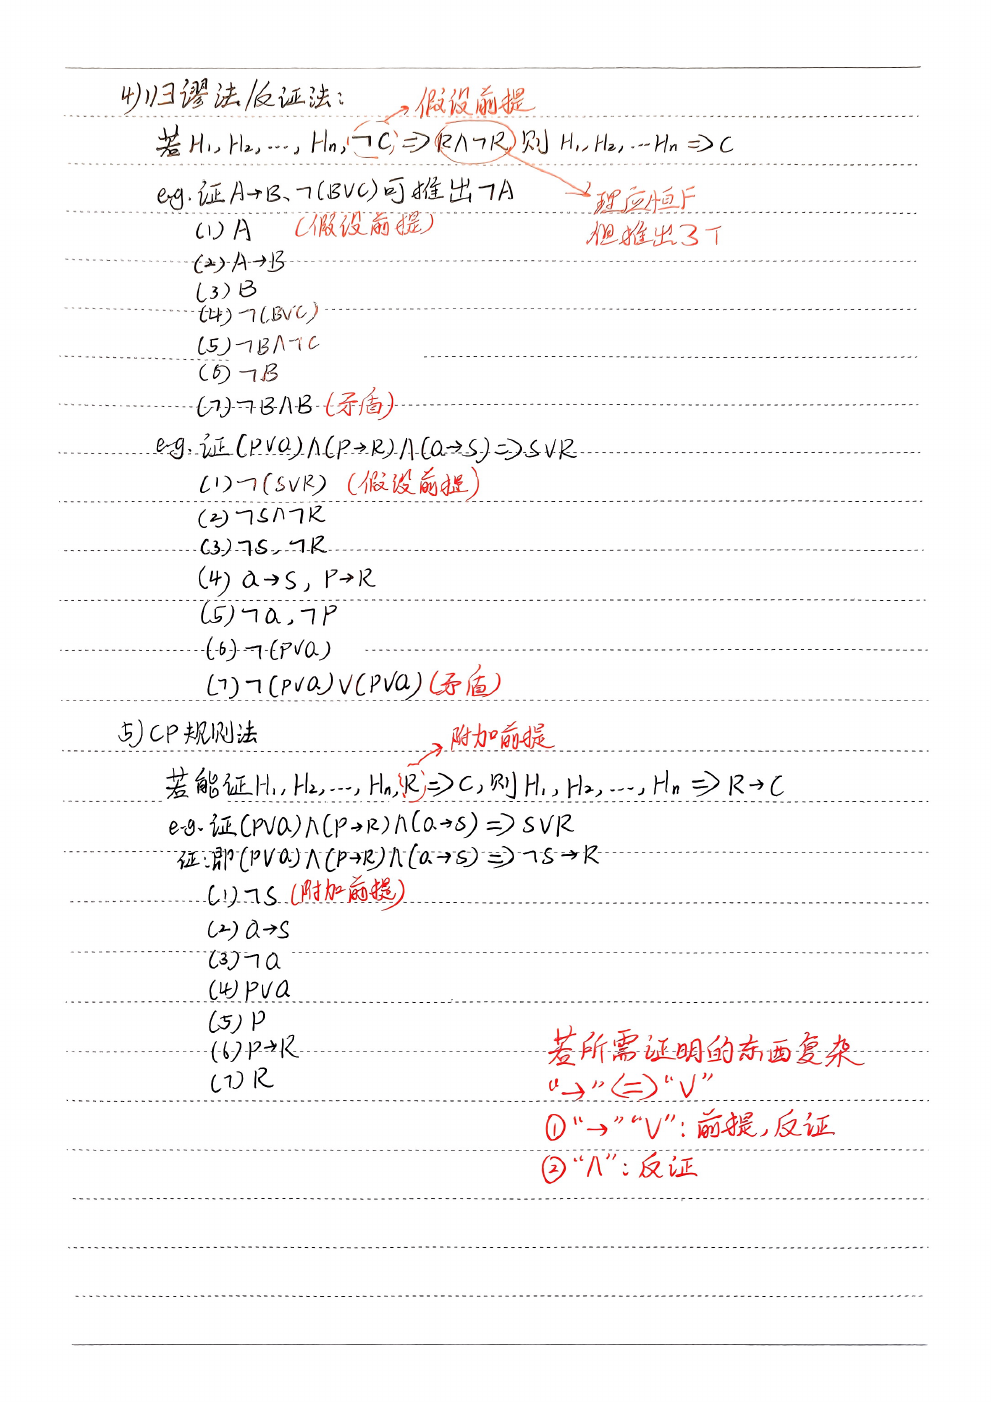 4)归谬法/反证法:
假设前提
若H₁,H₂,…,Hn,¬C⇒R∧¬R 则 H₁,H₂,…Hn⇒C
e.g.证A→B、¬(B∨C)可推出¬A
理应恒F
但推出了T
(1) A (假设前提)
(2) A→B
(3) B
(4) ¬(B∨C)
(5) ¬B∧¬C
(6) ¬B
(7) ¬B∧B (矛盾)
e.g.证(P∨Q)∧(P→R)∧(Q→S)⇒S∨R
(1) ¬(S∨R) (假设前提)
(2) ¬S∧¬R
(3) ¬S,¬R
(4) Q→S, P→R
(5) ¬Q,¬P
(6) ¬(P∨Q)
(7) ¬(P∨Q)∨(P∨Q) (矛盾)
5)CP规则法
附加前提
若能证H₁,H₂,…,Hn,R⇒C,则H₁,H₂,…,Hn⇒R→C
e.g.证(P∨Q)∧(P→R)∧(Q→S)⇒S∨R
证:即(P∨Q)∧(P→R)∧(Q→S)⇒¬S→R
(1) ¬S (附加前提)
(2) Q→S
(3) ¬Q
(4) P∨Q
(5) P
(6) P→R
(7) R
若所需证明的东西复杂
“→”⇔“∨”
①“→”“∨”:前提,反证
②“∧”:反证